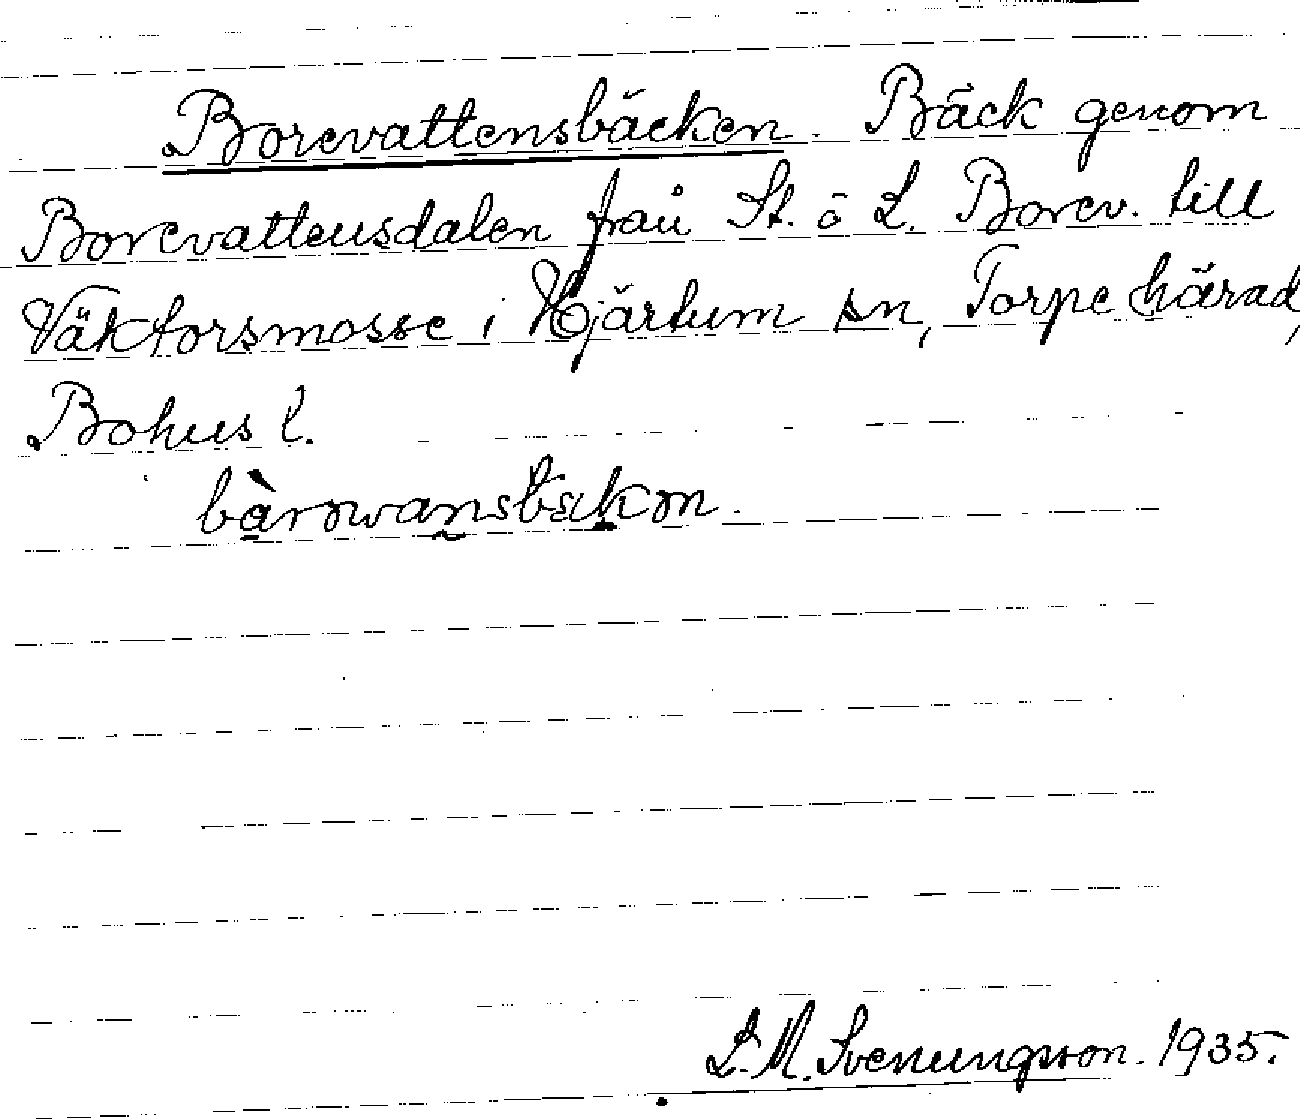 Borevattensbäcken. Bäck genom
Borevattensdalen från St. o L. Borev. till
Väktorsmosse i Hjärtum sn, Torpe härad,
Bohus l.
L. M. Svenungsson. 1935.